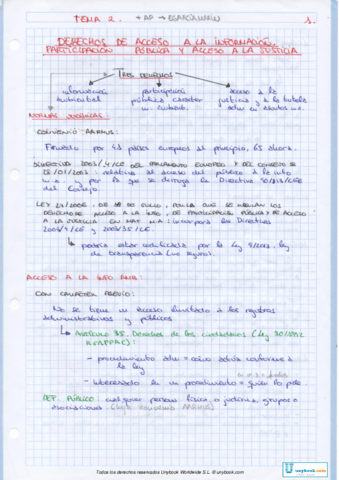 TEMA 2.
+ AP → EGARCIAMARIN
1.
DERECHOS DE ACCESO A LA INFORMACIÓN,
PARTICIPACIÓN PÚBLICA Y ACCESO A LA JUSTICIA.
TRES DERECHOS
información participación acceso a la
ambiental pública carácter justicia y a la tutela
m. ambiente
NORMAS
CONVENIO AARHUS:
Firmado por 43 países europeos al principio, 65 ahora.
DIRECTIVA 2003/4/CE DEL PARLAMENTO EUROPEO Y DEL CONSEJO DE
28/01/2003: relativa al acceso del público a la info
m.a. y por la que se deroga la Directiva 90/313/CEE
del Consejo.
LEY 27/2006, DE 18 DE JULIO, POR LA QUE SE REGULAN LOS
DERECHOS DE ACCESO A LA INFO, DE PARTICIPACIÓN PÚBLICA Y DE ACCESO
A LA JUSTICIA EN MAT M.A: incorpora las Directivas
2003/4/CE y 2003/35/CE.
podría estar modificada por la ley 9/2013, ley
de transparencia (no seguro).
ACCESO A LA INFO AMB:
CON CARÁCTER PREVIO:
No se tiene un acceso ilimitado a los registros
administrativos y públicos
ARTÍCULO 35. Derechos de los ciudadanos (Ley 30/1992
- procedimiento adm = cómo actúa conforme a
la ley
- interesado en un procedimiento = quien lo pide.
DEF. PÚBLICO: cualquier persona física o jurídica, grupos o
asociaciones (según Convenio AARHUS)
Todos los derechos reservados Unybook Worldwide S.L. © unybook.com
unybook.com